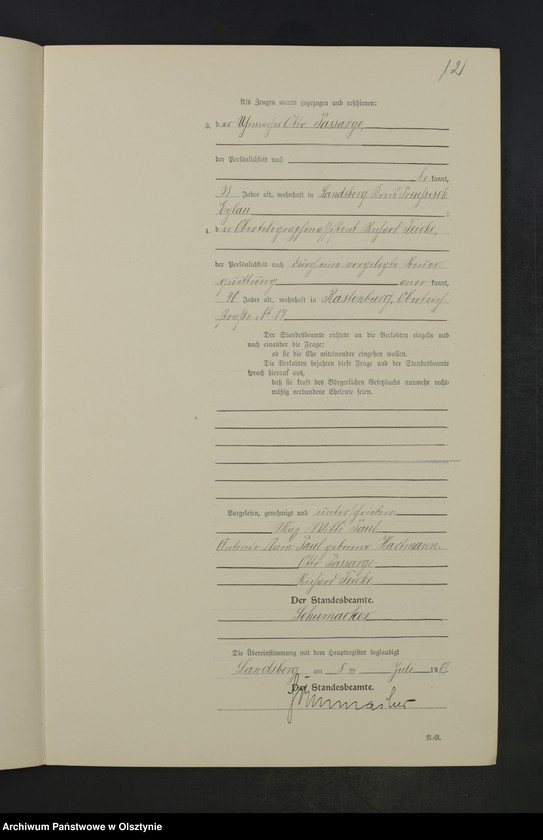 121
Als Zeugen waren zugezogen und erschienen:
3. der Uhrmacher Otto Passarge,
der Persönlichkeit nach
be kannt,
Jahre alt, wohnhaft in Landsberg Kreis Preußisch
Eylau ;
4. der Obertelegraphenassistent Richard
der Persönlichkeit nach durch eine vorgelegte
quittung aner kannt,
40 Jahre alt, wohnhaft in Rastenburg, Oberteich
straße No
Der Standesbeamte richtete an die Verlobten einzeln und
nach einander die Frage:
ob sie die Ehe miteinander eingehen wollen.
Die Verlobten bejahten diese Frage und der Standesbeamte
sprach hierauf aus,
daß sie kraft des Bürgerlichen Gesetzbuchs nunmehr recht-
mäßig verbundene Eheleute seien.
Vorgelesen, genehmigt und unterschrieben
Max Willi Paul
Antonie Paul geborene Hartmann
Otto Passarge
Richard
Der Standesbeamte.
Schumacher
Die Übereinstimmung mit dem Hauptregister beglaubigt
Landsberg am 8 ten Juli 19
Der Standesbeamte.
Schumacher
A.-B.
Archiwum Państwowe w Olsztynie